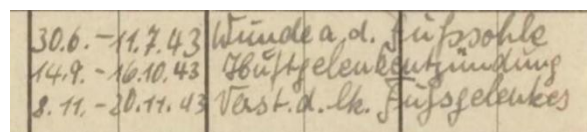 30.6. - 11.7.43 Wunde a. d. Fußsohle
14.9. - 16.10.43 Hüftgelenkentzündung
8.11. - 20.11.43 Verst. d. lk. Fußgelenkes